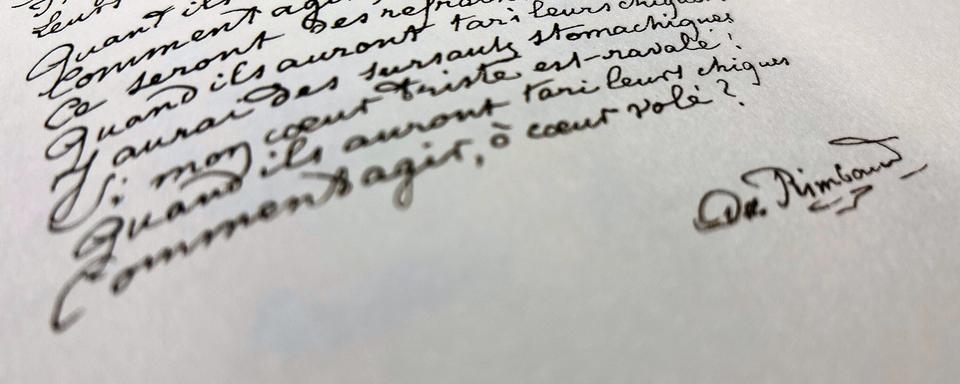 leurs
Quand ils
Comment agir
Ce seront des refrains
Quand ils auront tari leurs chiques
J'aurai des sursauts stomachiques
Si mon cœur triste est ravalé !
Quand ils auront tari leurs chiques
Comment agir, ô cœur volé ?
Rimbaud